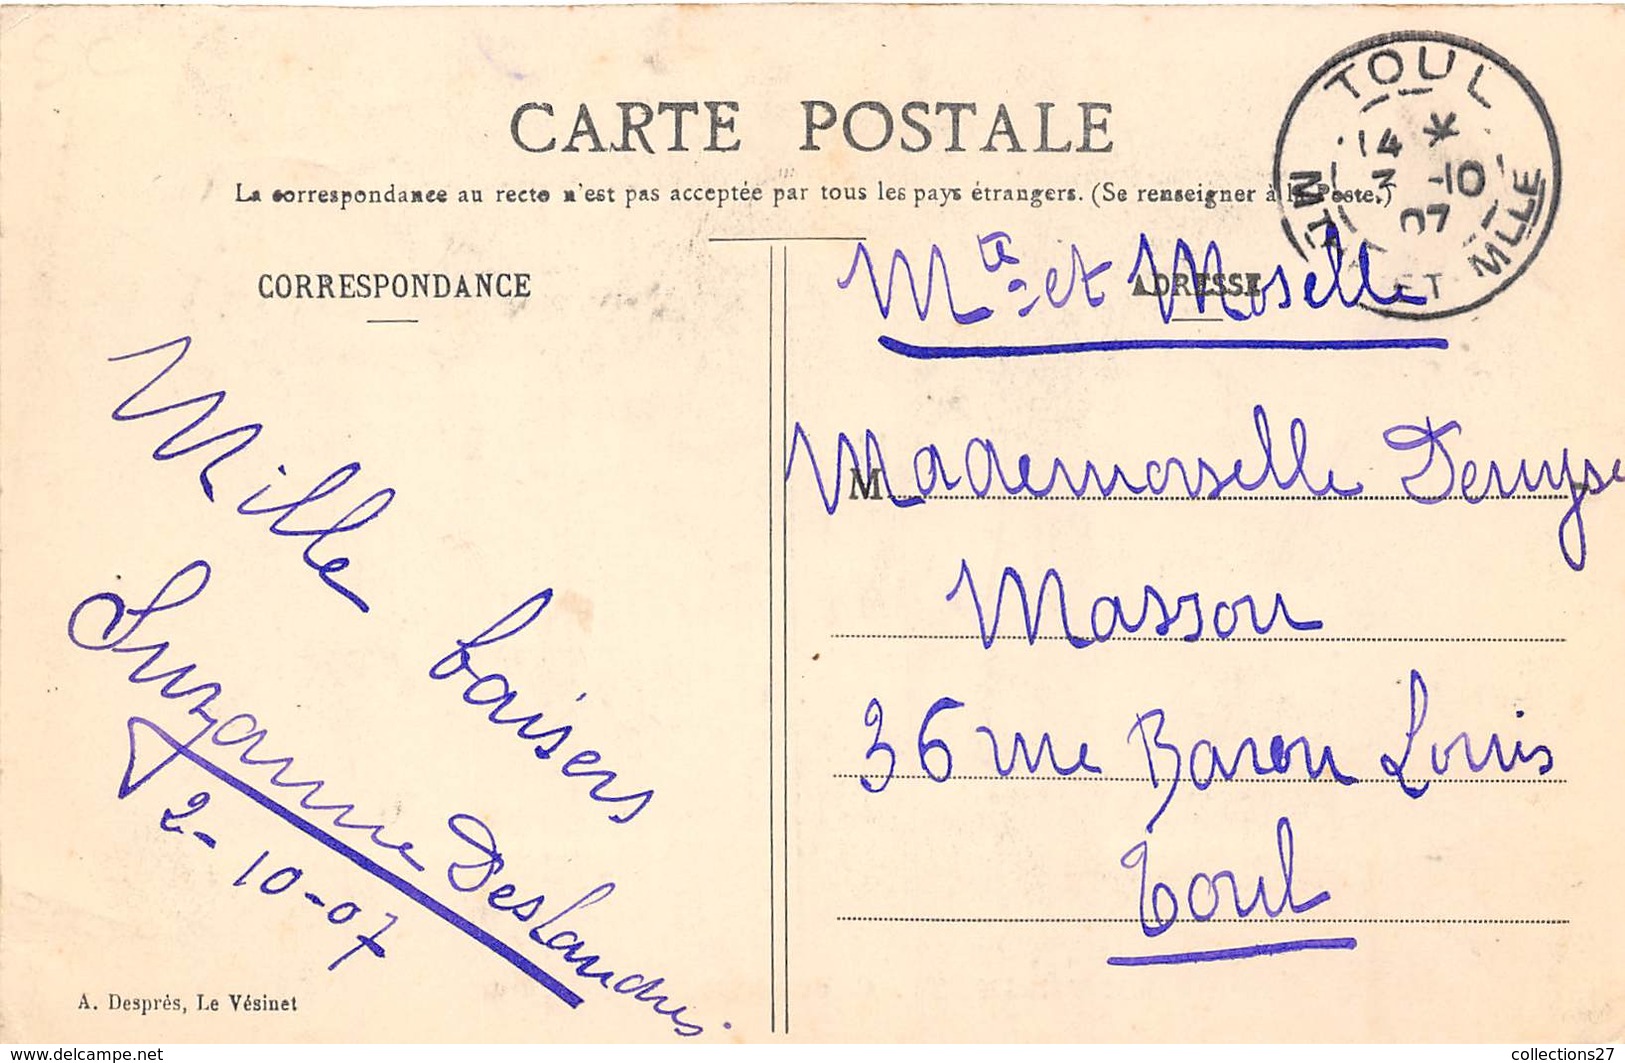 CARTE POSTALE
La correspondance au recto n'est pas acceptée par tous les pays étrangers. (Se renseigner à la Poste.)
TOUL
14 *
3 -10
07
MTHE ET MLLE
CORRESPONDANCE
ADRESSE
Mille baisers
Suzanne Deslandres
2-10-07
A. Després, Le Vésinet
Mte et Moselle
M Mademoiselle Denyse
Masson
36 rue Baron Louis
Toul
www.delcampe.net
collections27